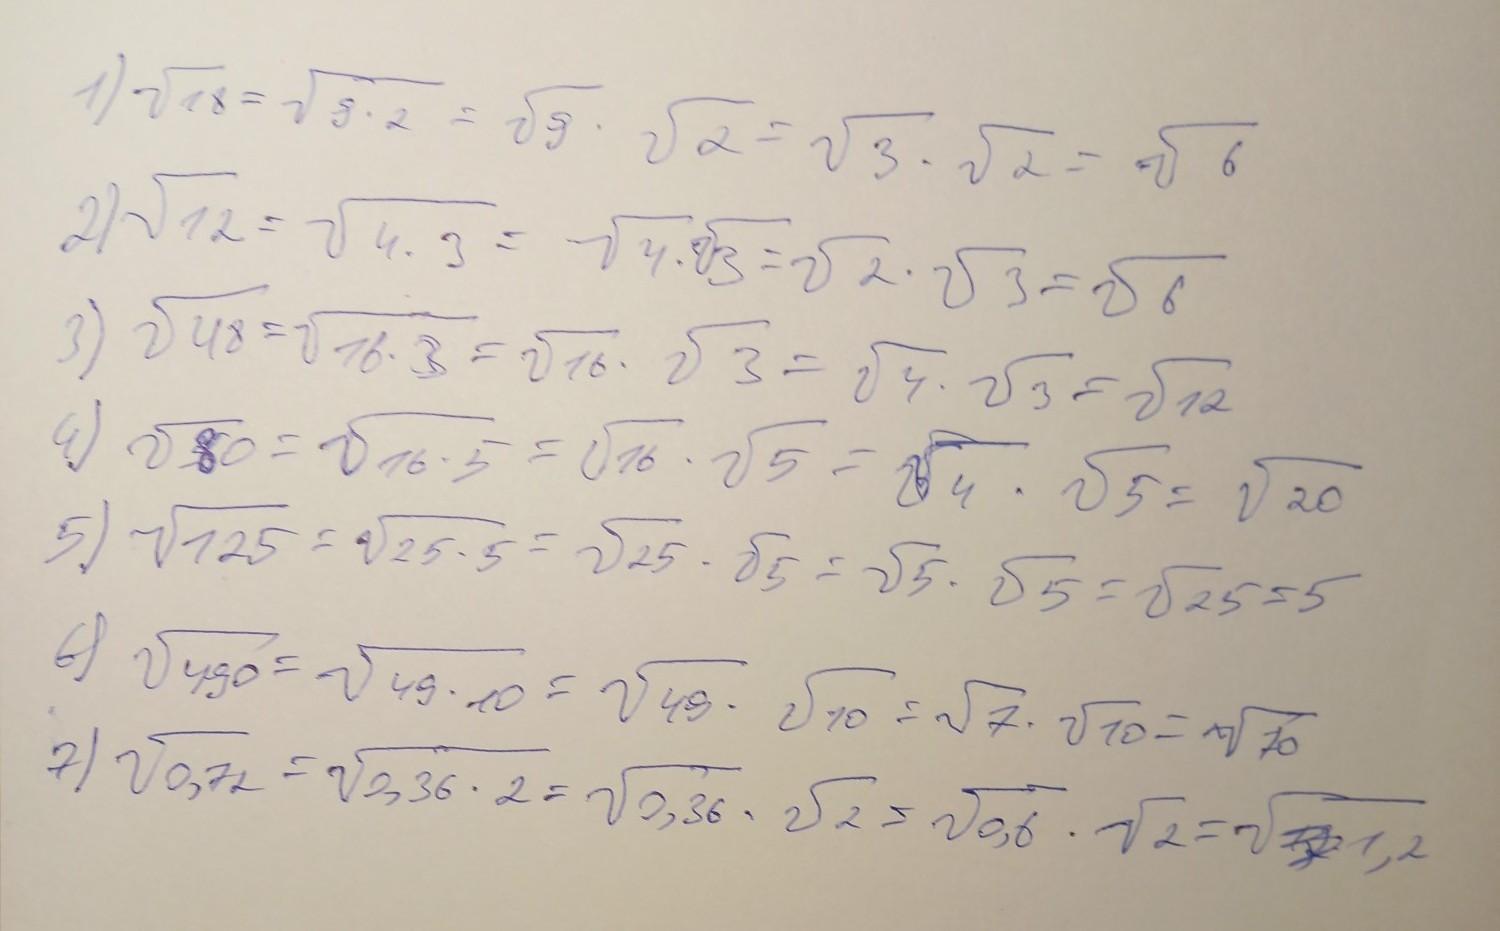 1) √18 = √9·2 = √9 · √2 = √3 · √2 = √6
2) √12 = √4·3 = √4·√3 = √2 · √3 = √6
3) √48 = √16·3 = √16 · √3 = √4 · √3 = √12
4) √80 = √16·5 = √16 · √5 = √4 · √5 = √20
5) √125 = √25·5 = √25 · √5 = √5 · √5 = √25 = 5
6) √490 = √49·10 = √49 · √10 = √7 · √10 = √70
7) √0,72 = √0,36·2 = √0,36 · √2 = √0,6 · √2 = √1,2